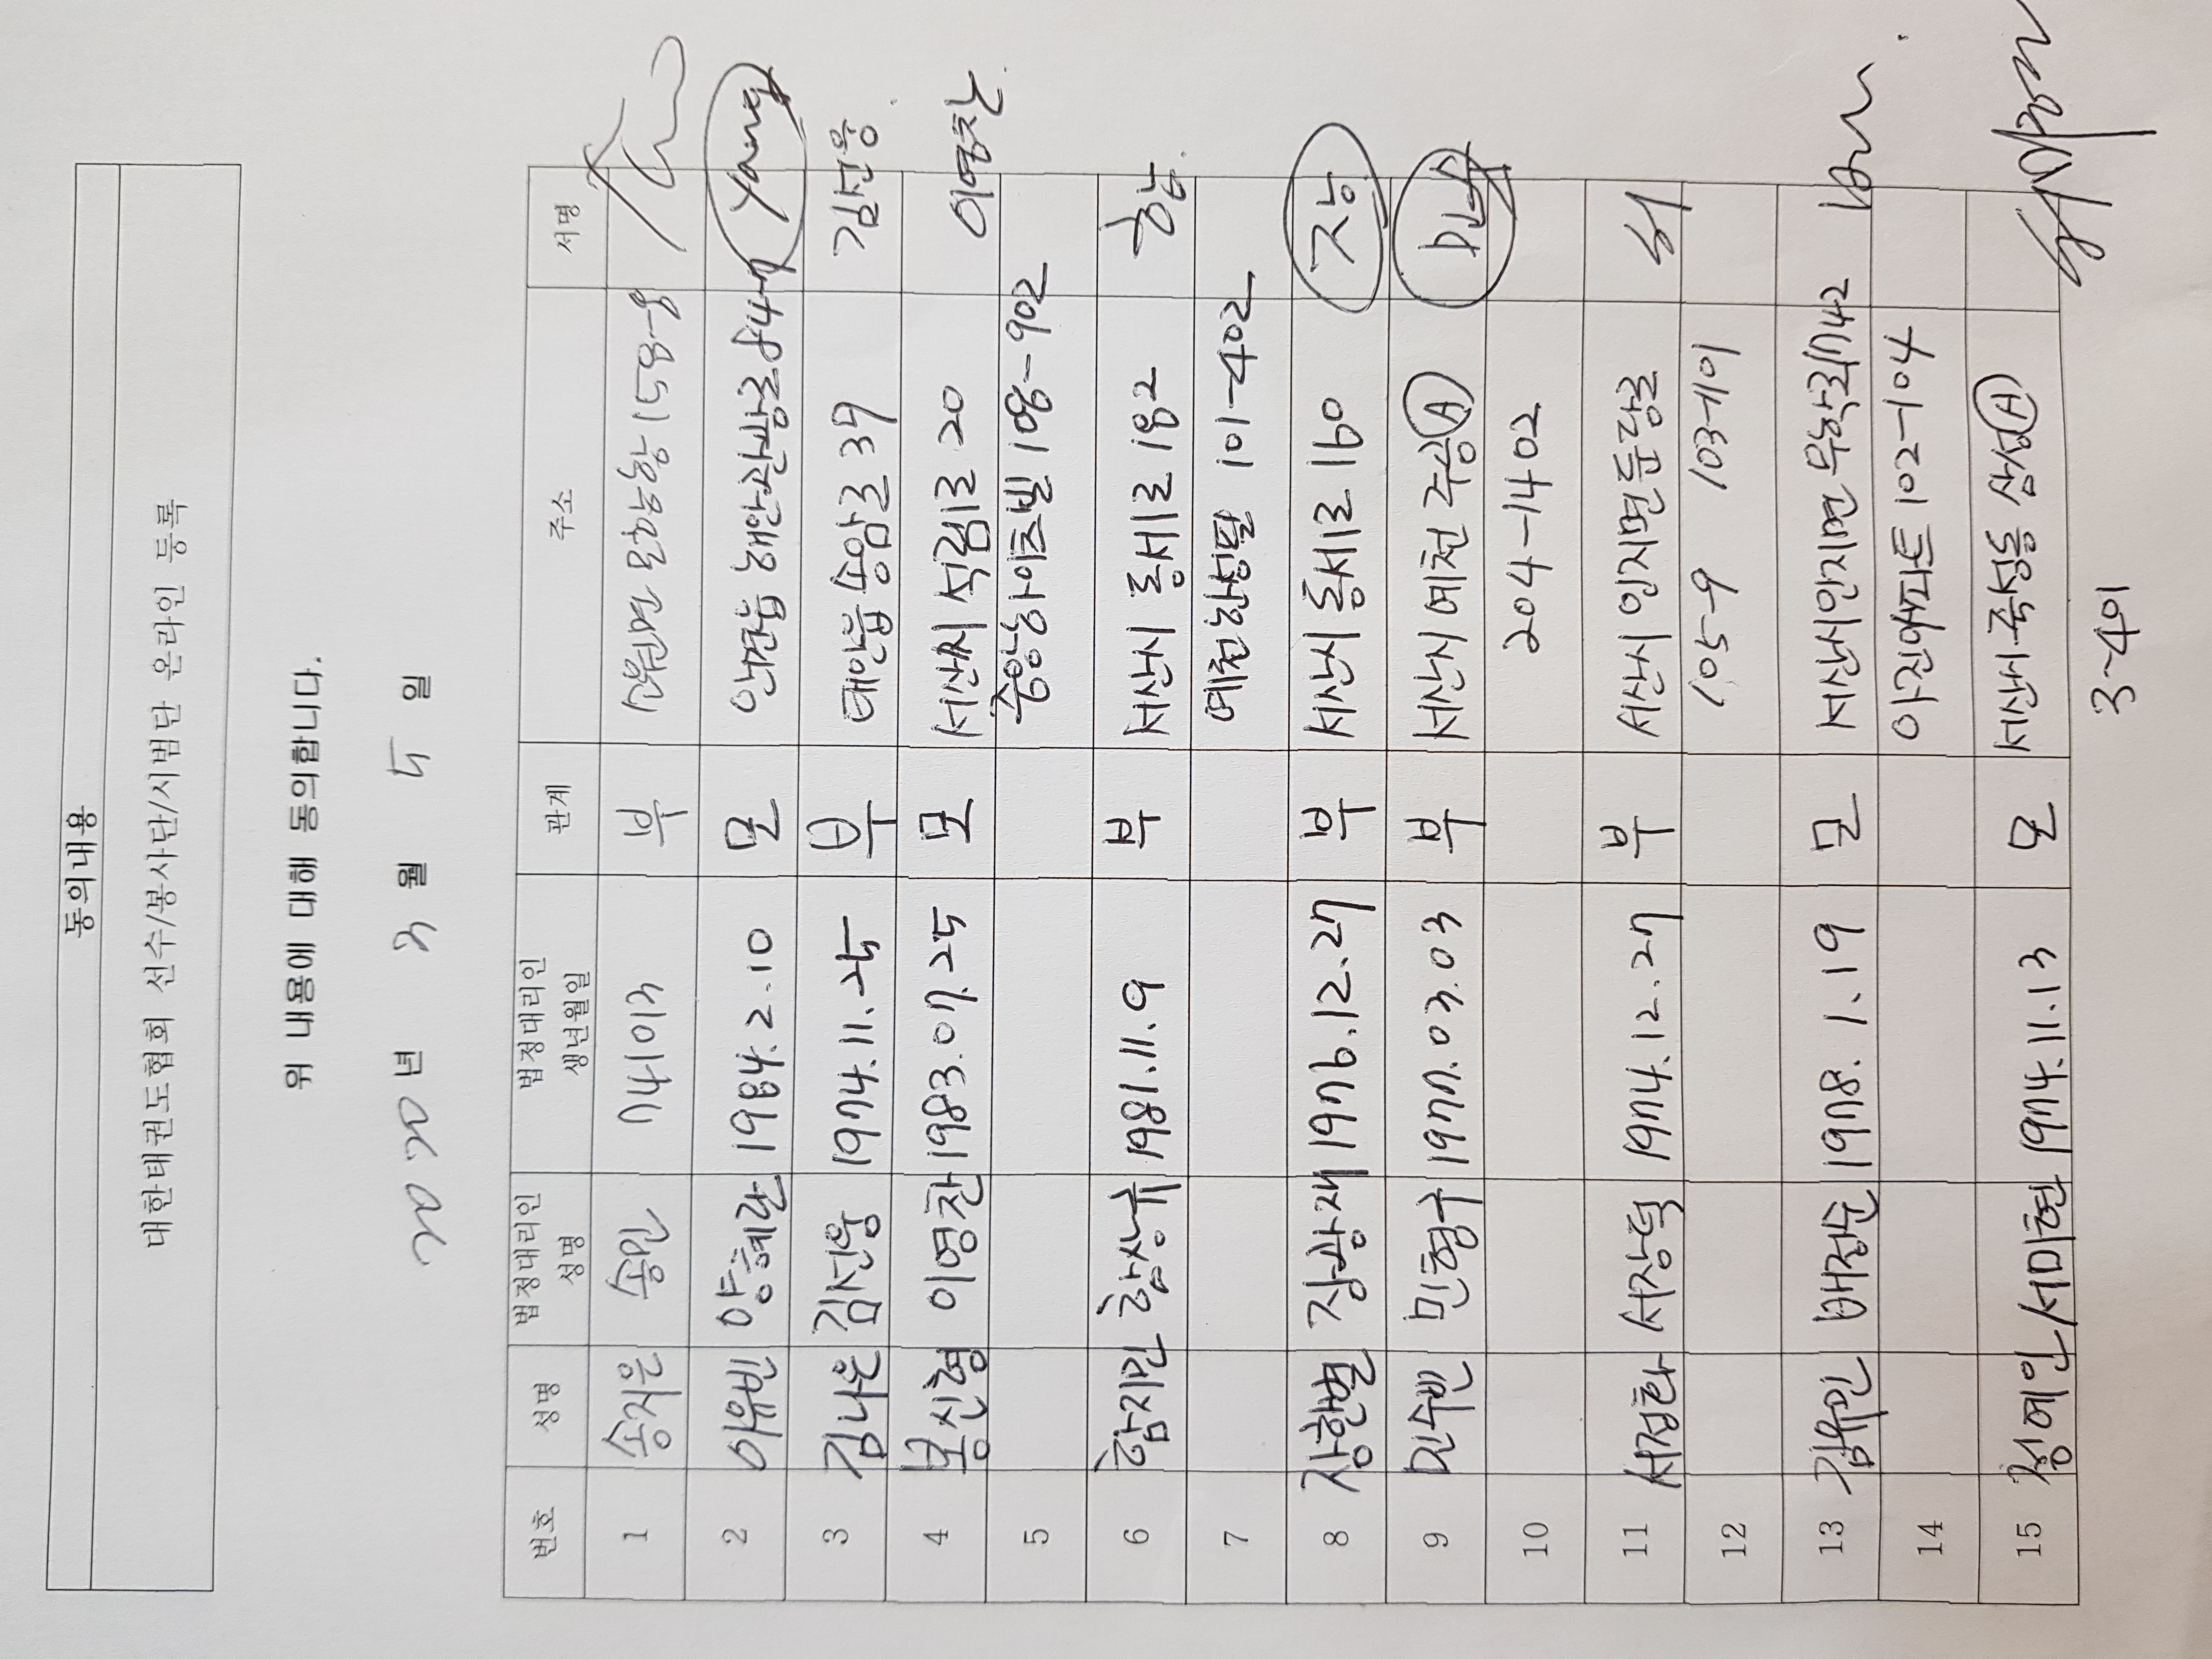 동의내용
대한태권도협회 선수/봉사단/시범단 온라인 등록
위 내용에 대해 동의합니다.
2020년 3월 5일
번호 성명 법정대리인 성명 법정대리인 생년월일 관계 주소 서명
1 송지은 송민 741013 부 원북면 옥파로 1158-8
2 이유빈 양혜란 1984.2.10 모 안면읍
3 김나은 김선용 1974.11.25 부 태안읍 송암로 39 김선용
4 봉신형 이영찬 1983.07.25 모 서산시 석림1로 20 이영찬
5 중앙하이츠빌 108-902
6 함지민 함상규 1981.11.9 부 서산시 동서1로 182
7 예천한성필 101-402
8 장한별 장광재 1976.12.27 부 서산시 동서1로 160 장
9 민수빈 민형구 1977.03.03 부 서산시 예천 주공 A 민
10 204-1402
11 서정화 서장덕 1974.12.27 부 서산시 인지면 둔당로 서
12 105-9 103-701
13 김유민 배정순 1978.1.19 모 서산시 인지면 무학로 1742
14 아진아파트 102-104
15 정예인 서미현 1974.11.13 모 서산시 죽성동 삼성 A 서미현
3-401